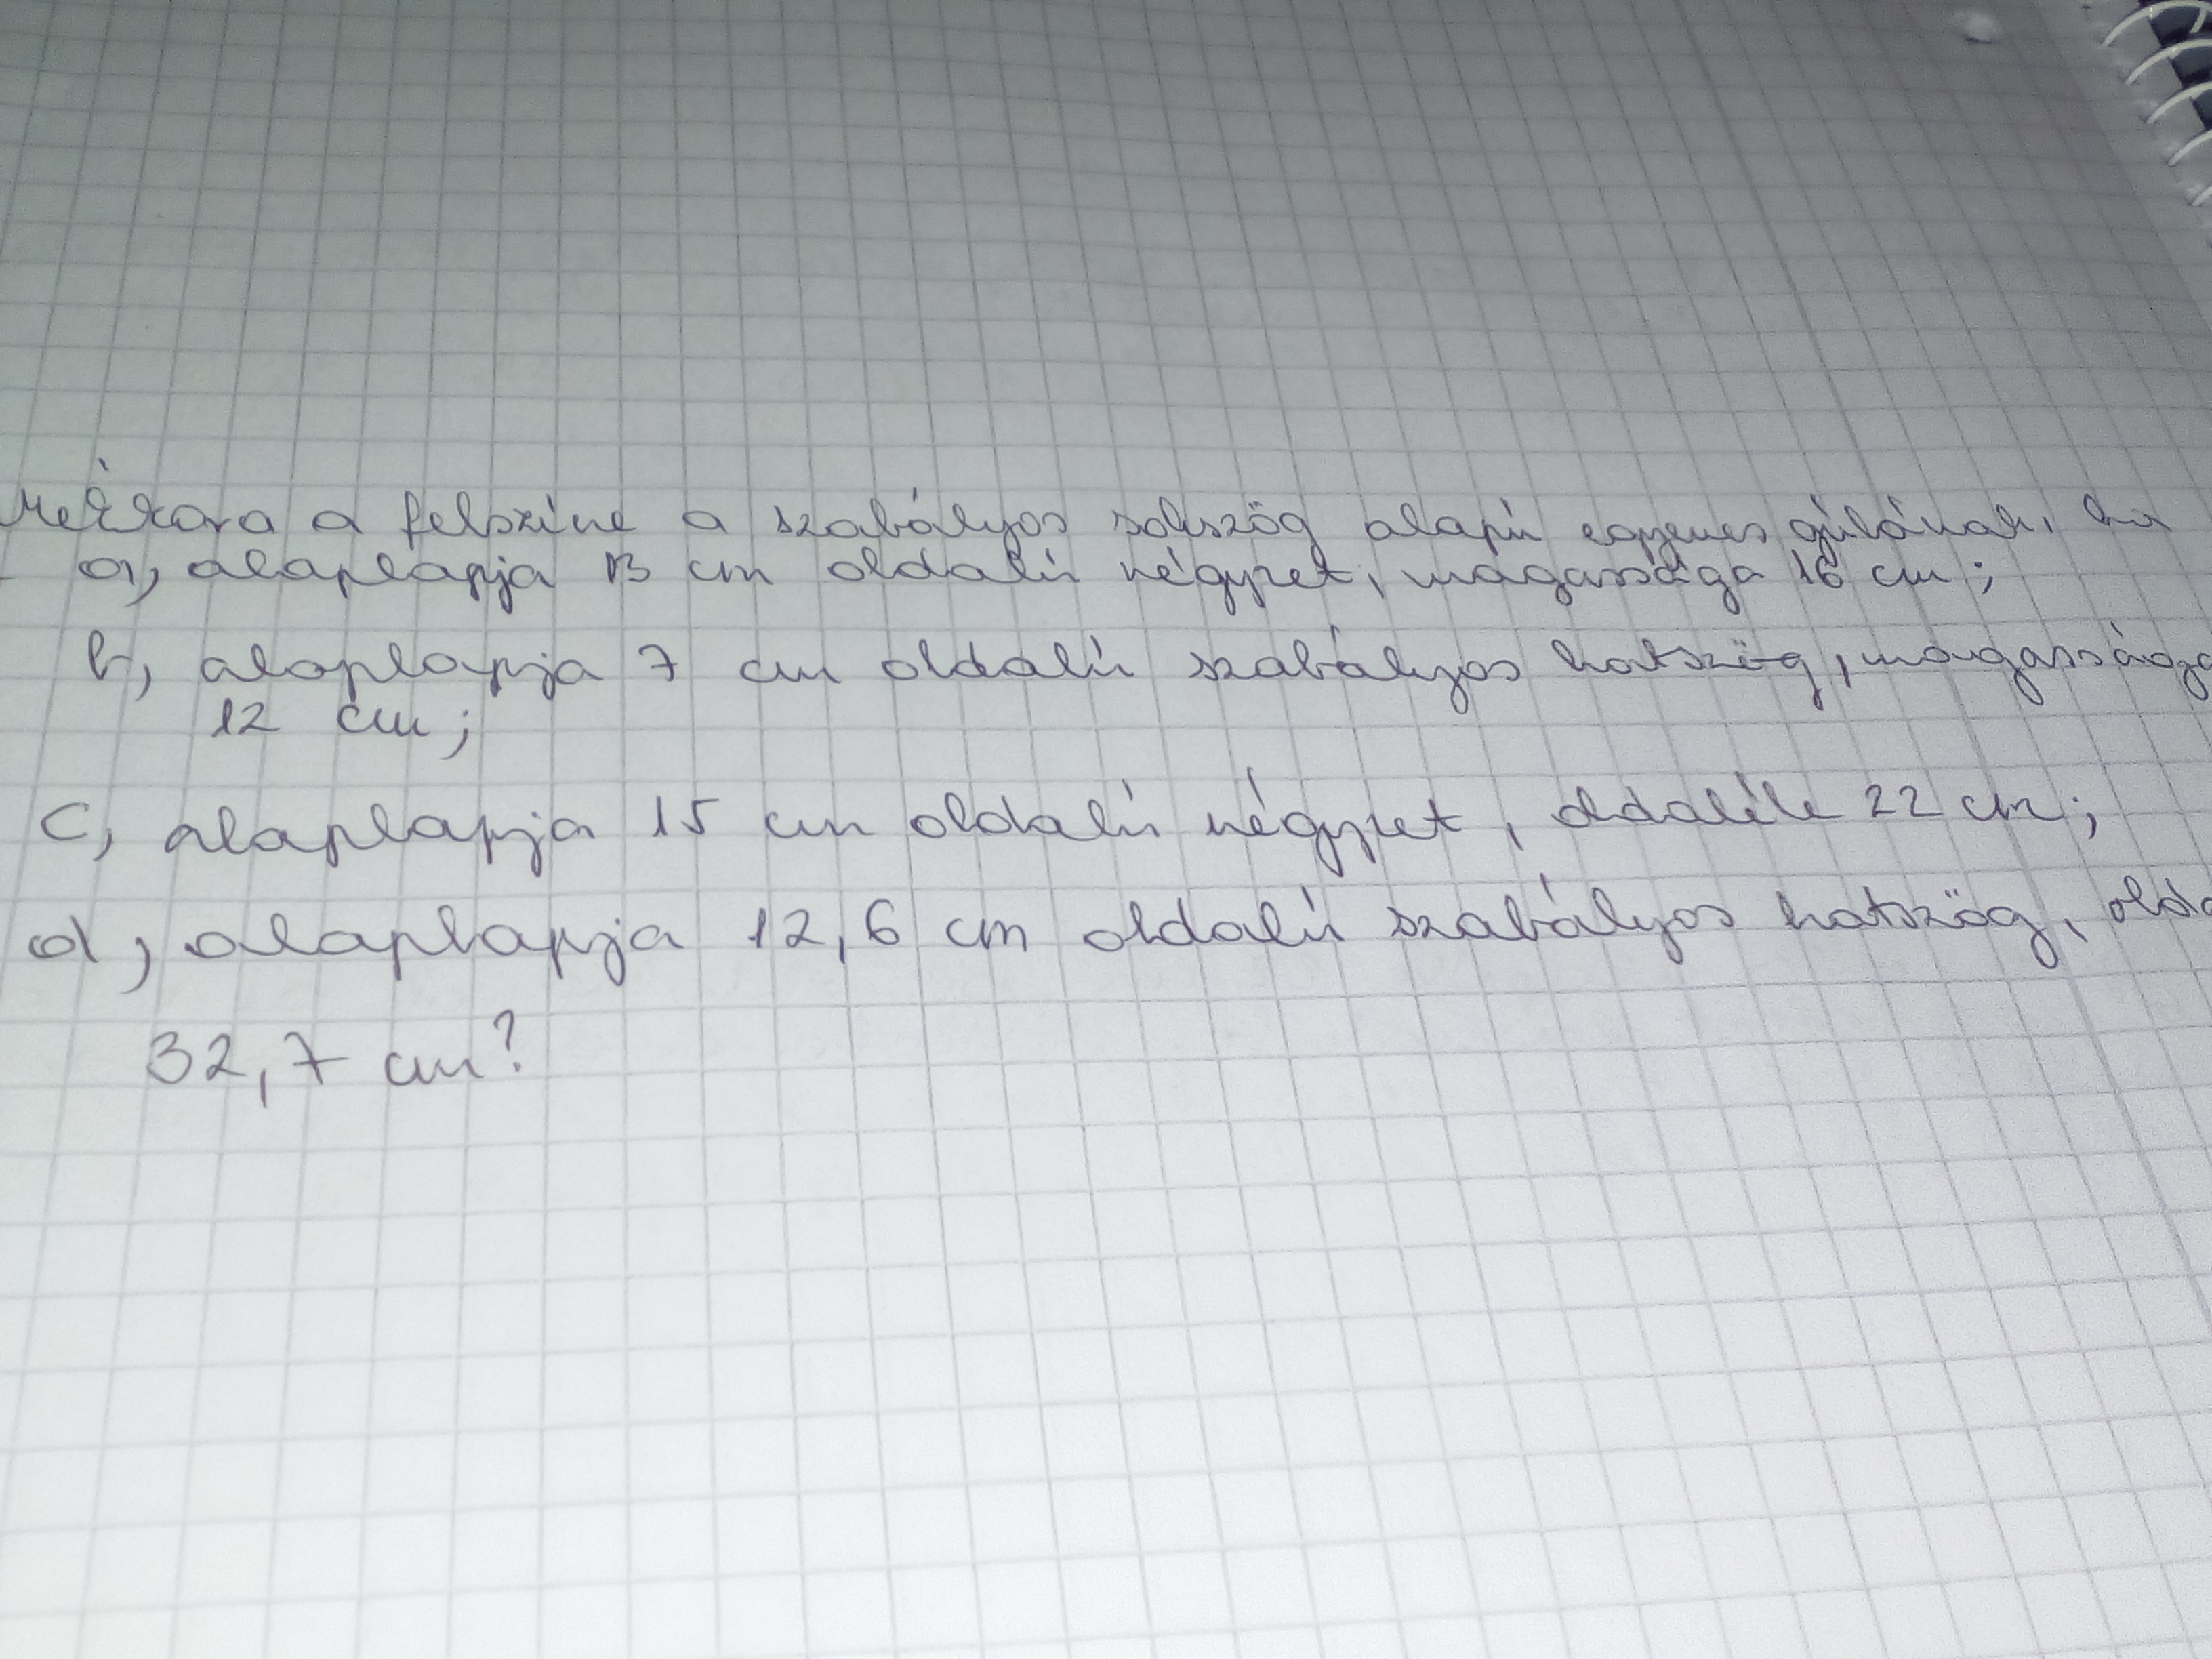 Mekkora a felszíne a szabályos sokszög alapú egyenes gúlának, ha
a, alaplapja 13 cm oldalú négyzet, magassága 16 cm;
b, alaplapja 7 cm oldalú szabályos hatszög, magassága
12 cm;
c, alaplapja 15 cm oldalú négyzet, oldaléle 22 cm;
d, alaplapja 12,6 cm oldalú szabályos hatszög,
32,7 cm?